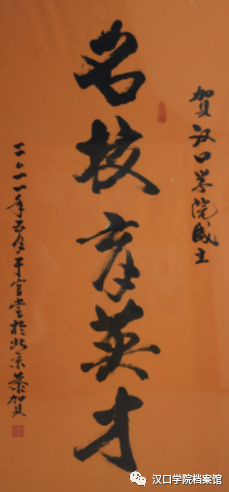 贺汉口学院成立
名校育英才
二〇一一年五月于官堂於北京恭贺
汉口学院档案馆